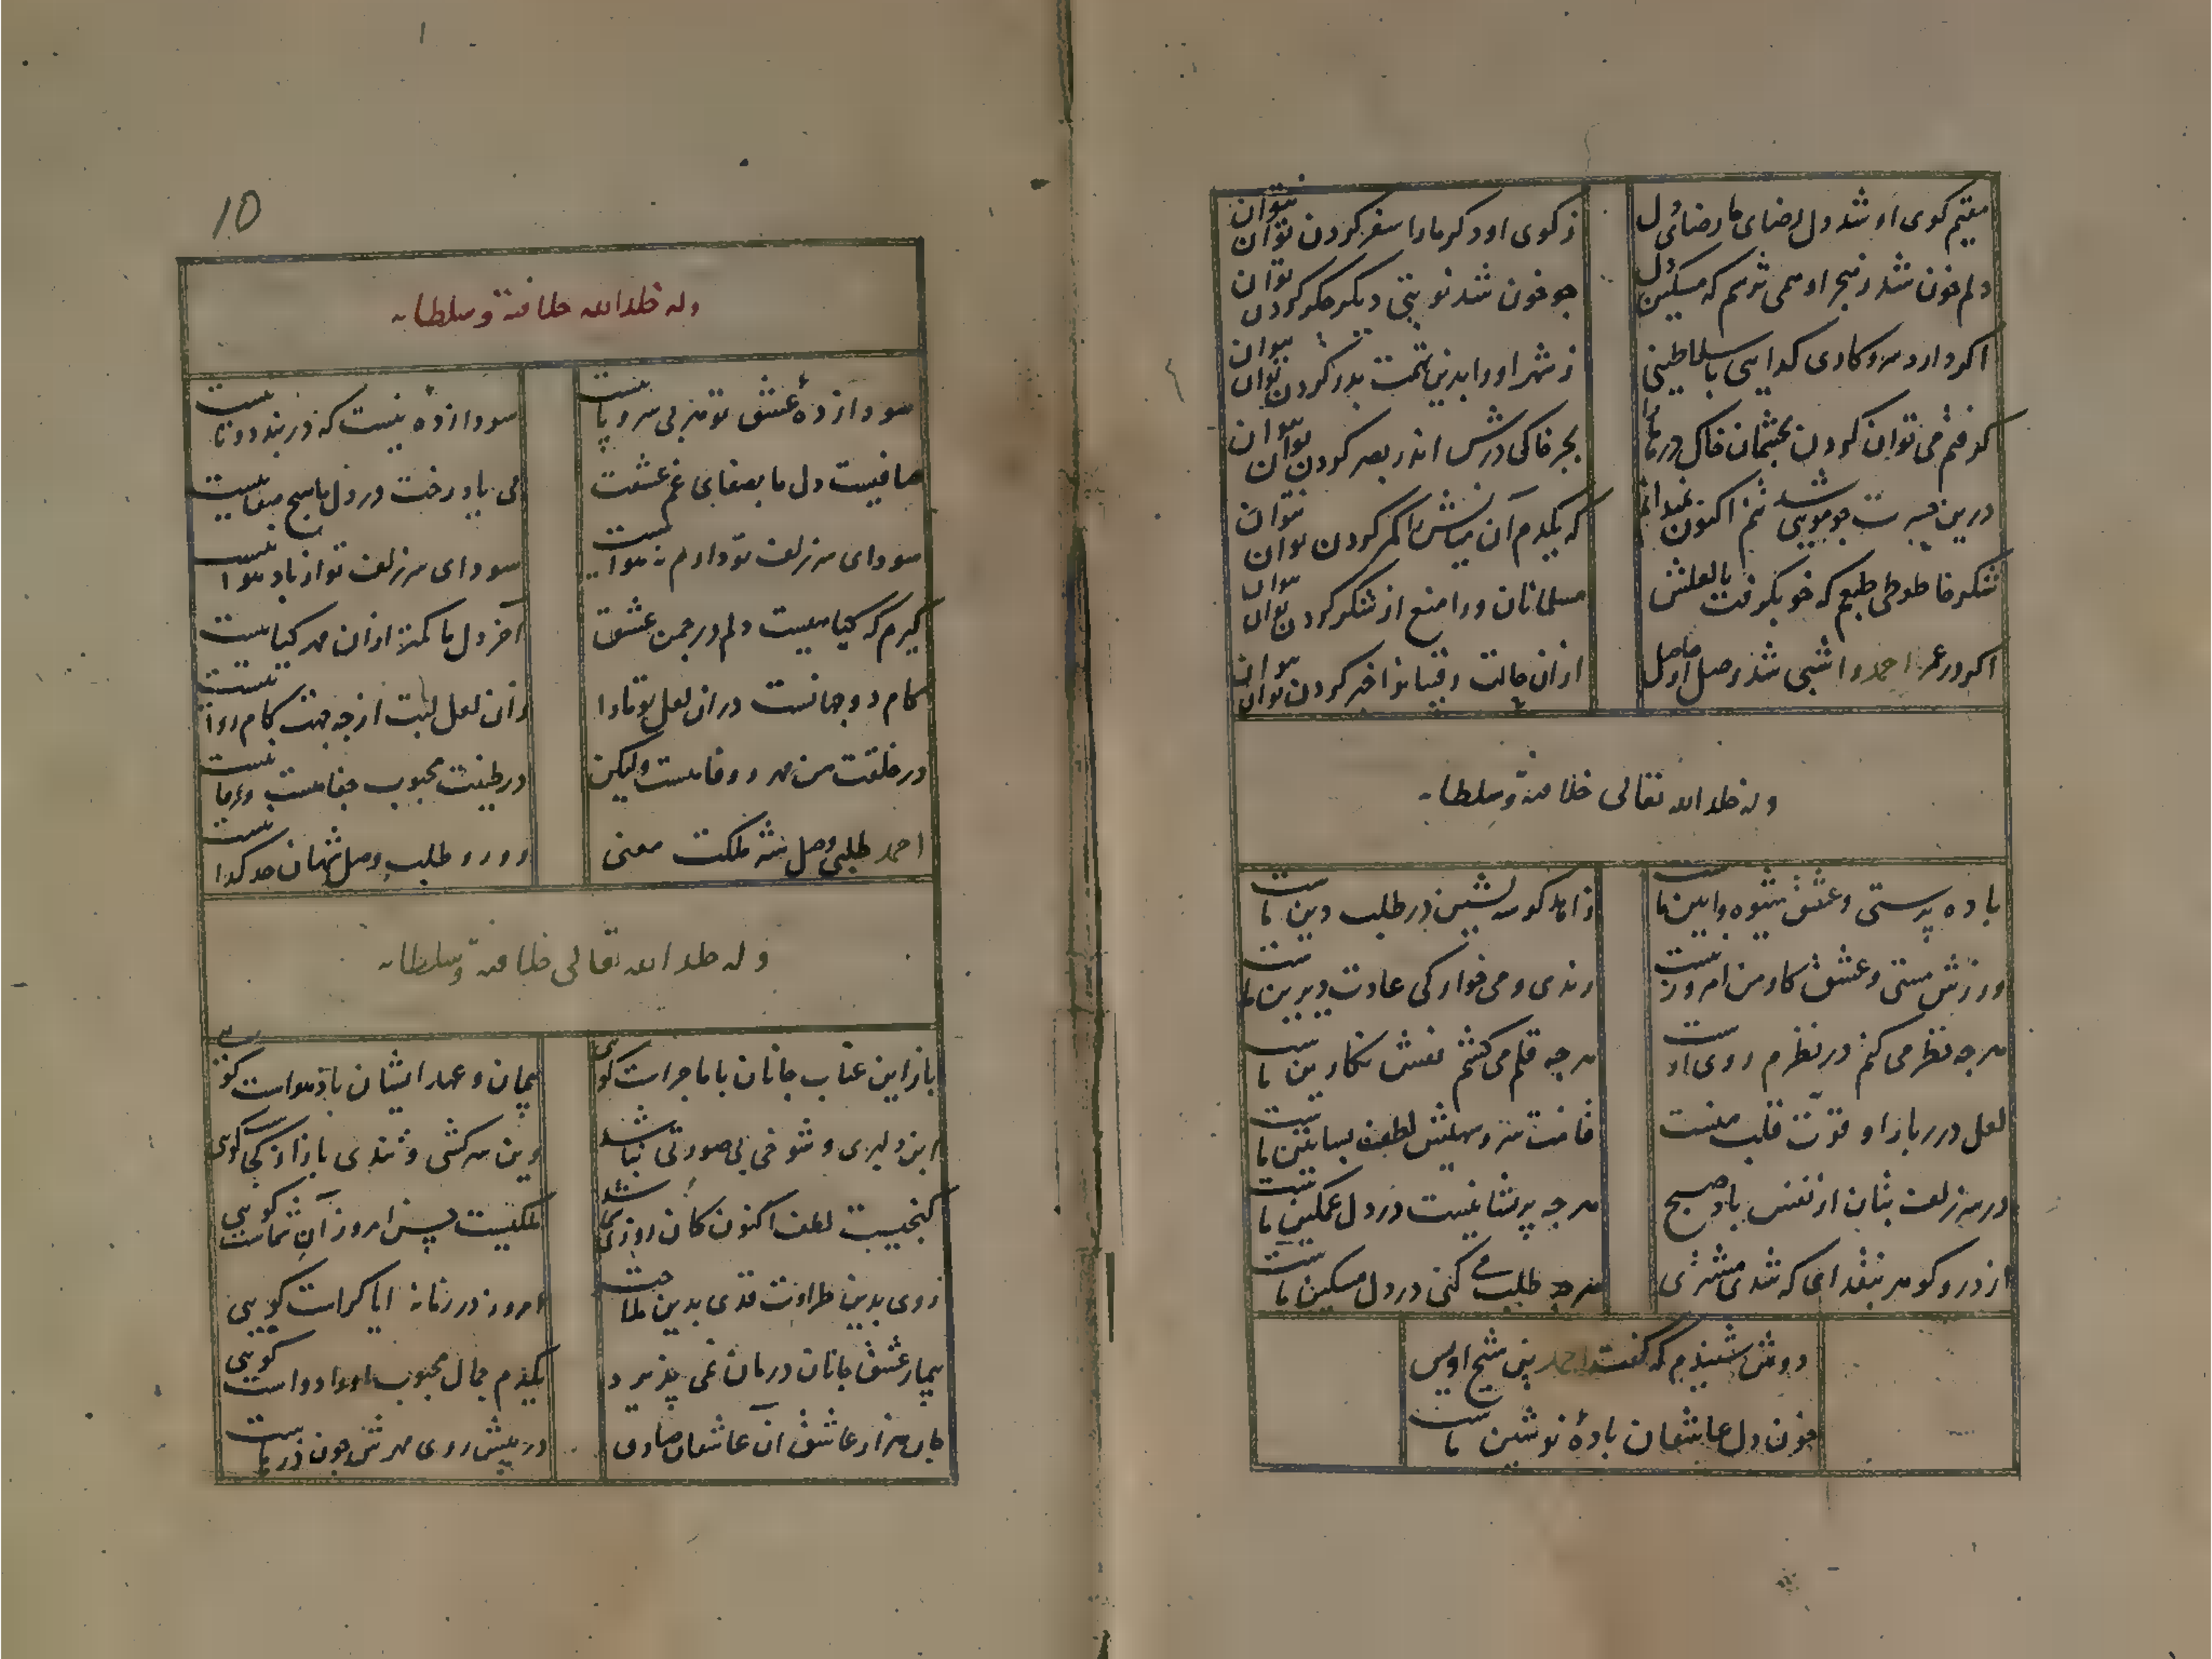 مقیم کوی او شد دل رضای ما رضای دل
ز کوی او دکر ما را سفر کردن توان نتوان
دلم خون شد ز هجر او همی ترسم که مسکین دل
جو خون شد نوبتی دیکر جکر کردن توان
اکر دارد سر و کاری کدایی با سلاطینی
ز شهر او را بدین تهمت بدر کردن توان نتوان
کرفتم می توان کردن بچشمان خاک در ما را
بجز خاک درش اندر بصر کردن توان نتوان
درین حسرت جو مویی شد تنم اکنون نمیدانم
که یکدم آن میانش را کمر کردن توان نتوان
شکرخا طوطی طبعم که خو بکرفت با لعلش
مسلمانان ورا منع از شکر کردن توان نتوان
اکر در عمر احمد را شبی شد وصل او حاصل
از آن حالت رقیبانرا خبر کردن توان نتوان
وله خلد الله تعالی خلافته وسلطانه
باده پرستی و عشق شیوه و آیین ماست
زاهد کوشه نشین در طلب دین ماست
ورزش مستی و عشق کار من امروز نیست
رندی و می خوارکی عادت دیرین ماست
هرجه نظر می کنم در نظرم روی اوست
هرجه قلم می کشم نقش نکارین ماست
لعل درر بار او قوت قلب منست
قامت سرو سهیش لطف بساتین ماست
در سر زلف بتان از نفس باد صبح
هرجه پریشانیست در دل غمکین ماست
از در و کوهر بنقد ای که شدی مشتری
هرجه طلب می کنی در دل مسکین ماست
دوش شنیدم که کفت احمد بن شیخ اویس
خون دل عاشقان بادهٔ نوشین ماست
10
وله خلد الله خلافته وسلطانه
سودازدهٔ عشق تو جز بی سر و پا نیست
سودازده نیست که در بند دوتا نیست
صافیست دل ما بصفای غم عشقت
بی یاد رخت در دل ما هیج صفا نیست
سودای سر زلف تو دارم نه هوا نیست
سودای سر زلف تو از باد هوا نیست
کیرم که کیا نیست دلم در جمن عشق
آخر دل ما کمتر از آن مهر کیا نیست
کام دو جهانست در آن لعل تو ما را
زان لعل لبت از جه جهت کام روا نیست
در خلقت من مهر و وفا هست ولیکن
در طینت محبوب جفا هست وفا نیست
احمد طلبی وصل شه ملکت معنی
رو رو طلب وصل شهان حد کدا نیست
وله خلد الله تعالی خلافته وسلطانه
باز این عتاب جانان با ما جراست کویی
پیمان و عهد ایشان باد هواست کویی
این دلبری و شوخی بی صورتی نباشد
وین سرکشی و تندی باز از کجاست کویی
کنجیست لطف اکنون کان روزی که باشد
ملکیست حسن امروز آن شماست کویی
روی بدین طراوت قدی بدین ملاحت
امروز در زمانه ایا کراست کویی
بیمار عشق جانان درمان نمی پذیرد
یکدم جمال محبوب او را دواست کویی
جان هزار عاشق آن عاشقان صادق
در پیش روی مهرش جون ذره‌هاست